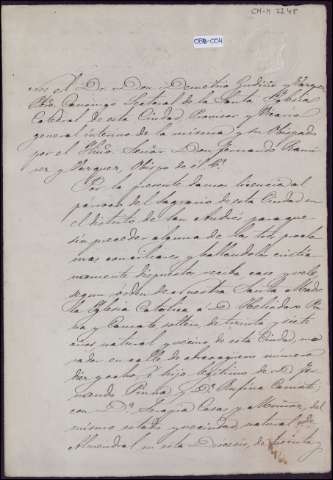 CM-M 22 45
COB-CO4
nos el Dr. Don Demetrio Gudicio y Márquez,
Pbro. Canónigo Doctoral de la Santa Iglesia
Catedral de esta Ciudad, Provisor y Vicario
general interino de la misma y su Obispado
por el Yllmo. Señor Don Fernando Ramí-
rez y Vázquez, Obispo de él &
Por la presente damos licencia al
párroco del Sagrario de esta Ciudad en
el distrito de San Andrés para que
sin preceder alguna de las tres procla-
mas conciliares y hallándolos cristia-
namente dispuestos reciba case y vele,
segun órden de nuestra Santa Madre
la Iglesia Católica a D. Heliodoro Pin-
na y Camato soltero de treinta y siete
años natural y vecino de esta Ciudad, mo-
rador en calle de número
diez y ocho é hijo legítimo de D. Fer-
nando Pinna y Dª Rufina Camato,
con Dª Casas y Muñoz, del
mismo estado y vecindad natural de
Almendral en esta Diócesis, de treinta y